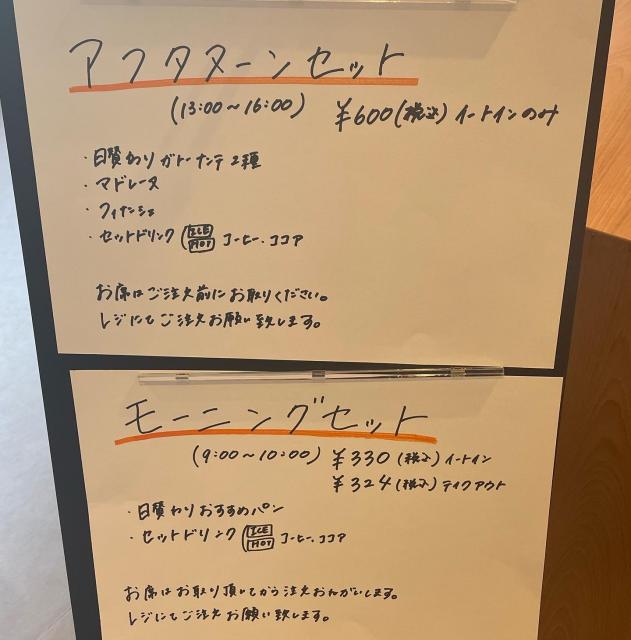 アフタヌーンセット
(13:00～16:00) ¥600(税込) イートインのみ
・日替わりガトーナンテ2種
・マドレーヌ
・フィナンシェ
・セットドリンク (ICE HOT コーヒー・ココア
お席はご注文前にお取りください。
レジにてご注文お願い致します。
モーニングセット
(9:00～10:00) ¥330(税込)イートイン
¥324(税込)テイクアウト
・日替わりおすすめパン
・セットドリンク (ICE HOT コーヒー・ココア
お席はお取り頂いてから注文おねがいします。
レジにてご注文お願い致します。